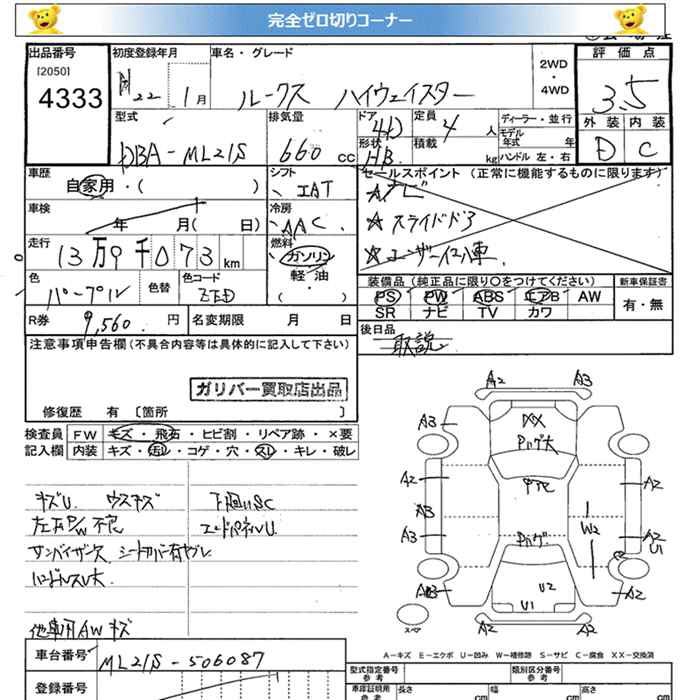 完全ゼロ切りコーナー
出品番号
[2050]
4333
初度登録年月
H22 1月
車名・グレード
ルークス ハイウェイスター
2WD
・
4WD
評価点
3.5
外装 内装
D C
型式
DBA-ML21S
排気量
660 cc
ドア
4D
形状
HB
定員
4 人
積載
kg
ディーラー・並行
モデル
年式 年
ハンドル 左・右
車歴
自家用・( )
シフト
IAT
セールスポイント (正常に機能するものに限ります)
ナビ
スライドドア
ユーザー仕入車
車検
年 月( 日)
冷房
AAC
走行
13万9千073km
燃料
ガソリン
軽・油
( )
色
パープル
色替
色コード
装備品(純正品に限り○をつけてください)
PS PW ABS エアB AW
SR ナビ TV カワ
新車保証書
有・無
R券
9,560 円
名変期限 月 日
後日品
取説
注意事項申告欄(不具合内容等は具体的に記入して下さい)
ガリバー買取店出品
修復歴 有〔箇所 〕
検査員
記入欄
FW キズ・飛石・ヒビ割・リペア跡・×要
内装 キズ・汚レ・コゲ・穴・スレ・キレ・破レ
キズU ウスキズ
下廻りSC
左右P/W不良
エンドパネルU
サンバイザー欠 シートカバー有
ハンドルスレ大
他車用AWキズ
A2 A3
A3
XX
Pハゲ大
A2
A2
A3
A3
Pハゲ
W2
A2
U1
A2
U2
U1
A2
A2
スペア
A-キズ E-エクボ U-凹み W-補修跡 S-サビ C-腐食 XX-交換済
車台番号
ML21S-506087
登録番号
型式指定番号
参考
類別区分番号
参考
車庫証明用
参考
長さ
cm
幅
cm
高さ
cm